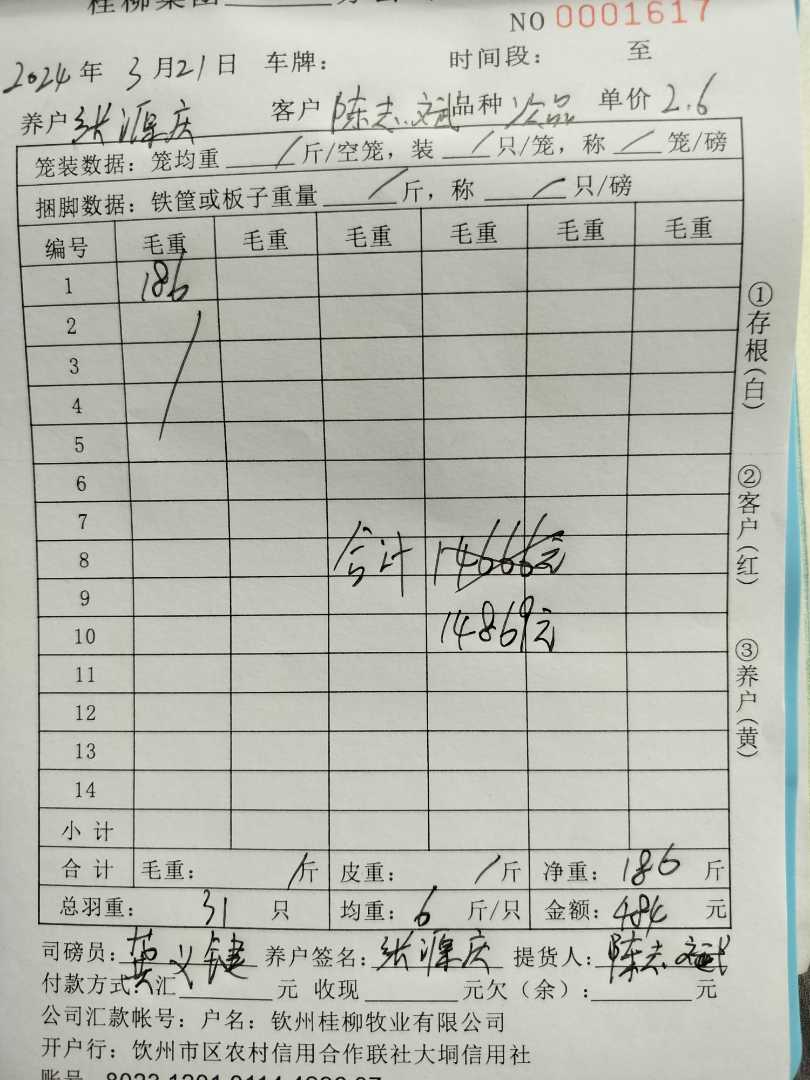 桂柳集团
NO 0001617
2024年 3月21日 车牌： 时间段： 至
养户 张源庆 客户 陈志斌 品种 次品 单价 2.6
笼装数据：笼均重 / 斤/空笼，装 / 只/笼，称 / 笼/磅
捆脚数据：铁筐或板子重量 / 斤，称 / 只/磅
编号 毛重 毛重 毛重 毛重 毛重 毛重
1 186
2 /
3
4
5
6
7
8 合计 14666元
9
10 14869元
11
12
13
14
小计
合计 毛重： / 斤 皮重： / 斤 净重：186 斤
总羽重： 31 只 均重：6 斤/只 金额：484 元
司磅员： 义键 养户签名：张源庆 提货人：陈志斌
付款方式：汇 元 收现 元欠（余）： 元
公司汇款帐号：户名：钦州桂柳牧业有限公司
开户行：钦州市区农村信用合作联社大垌信用社
①存根（白）
②客户（红）
③养户（黄）